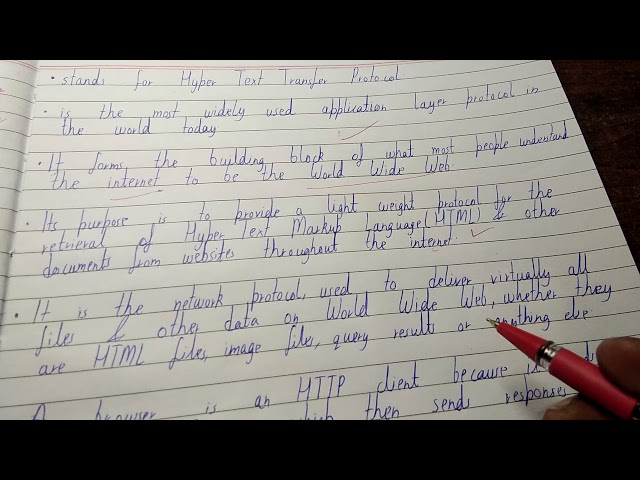 • stands for Hyper Text Transfer Protocol
• is the most widely used application layer protocol in
the world today
• It forms the building block of what most people understand
the internet to be the World Wide Web.
• Its purpose is to provide a light weight protocol for the
retrieval of Hyper Text Markup Language (HTML) & other
documents from websites throughout the internet
• It is the network protocol, used to deliver virtually all
files & other data on World Wide Web, whether they
are HTML files, image files, query results or anything else
browser is an HTTP client because
then sends responses